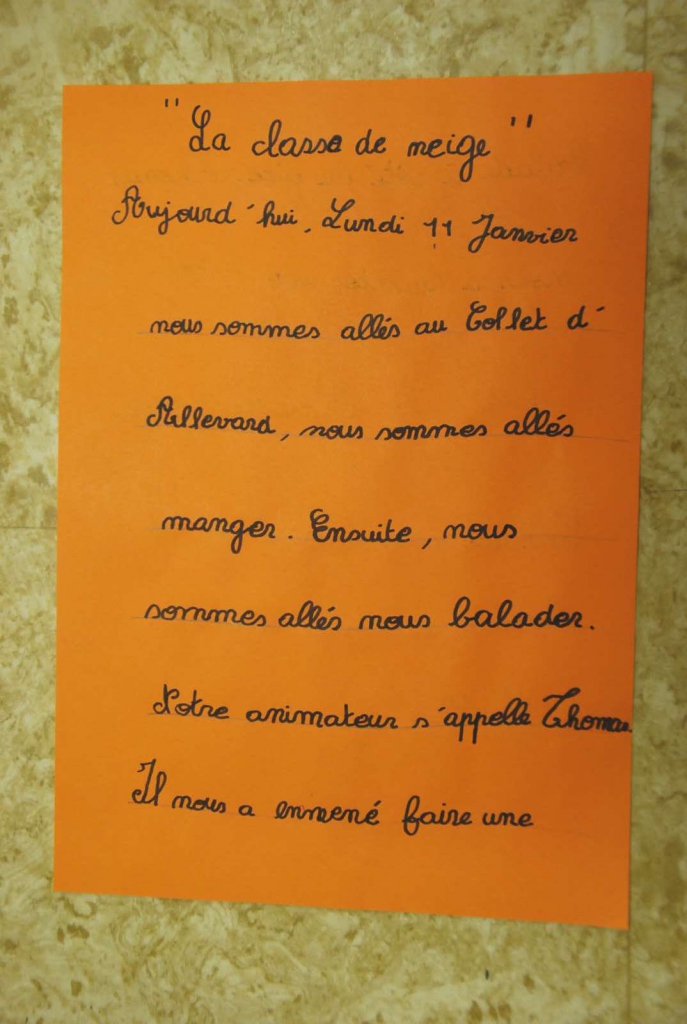 "La classe de neige"
Aujourd'hui, Lundi 11 Janvier
nous sommes allés au Collet d'
Allevard, nous sommes allés
manger. Ensuite, nous
sommes allés nous balader.
Notre animateur s'appelle Thomas.
Il nous a enmené faire une